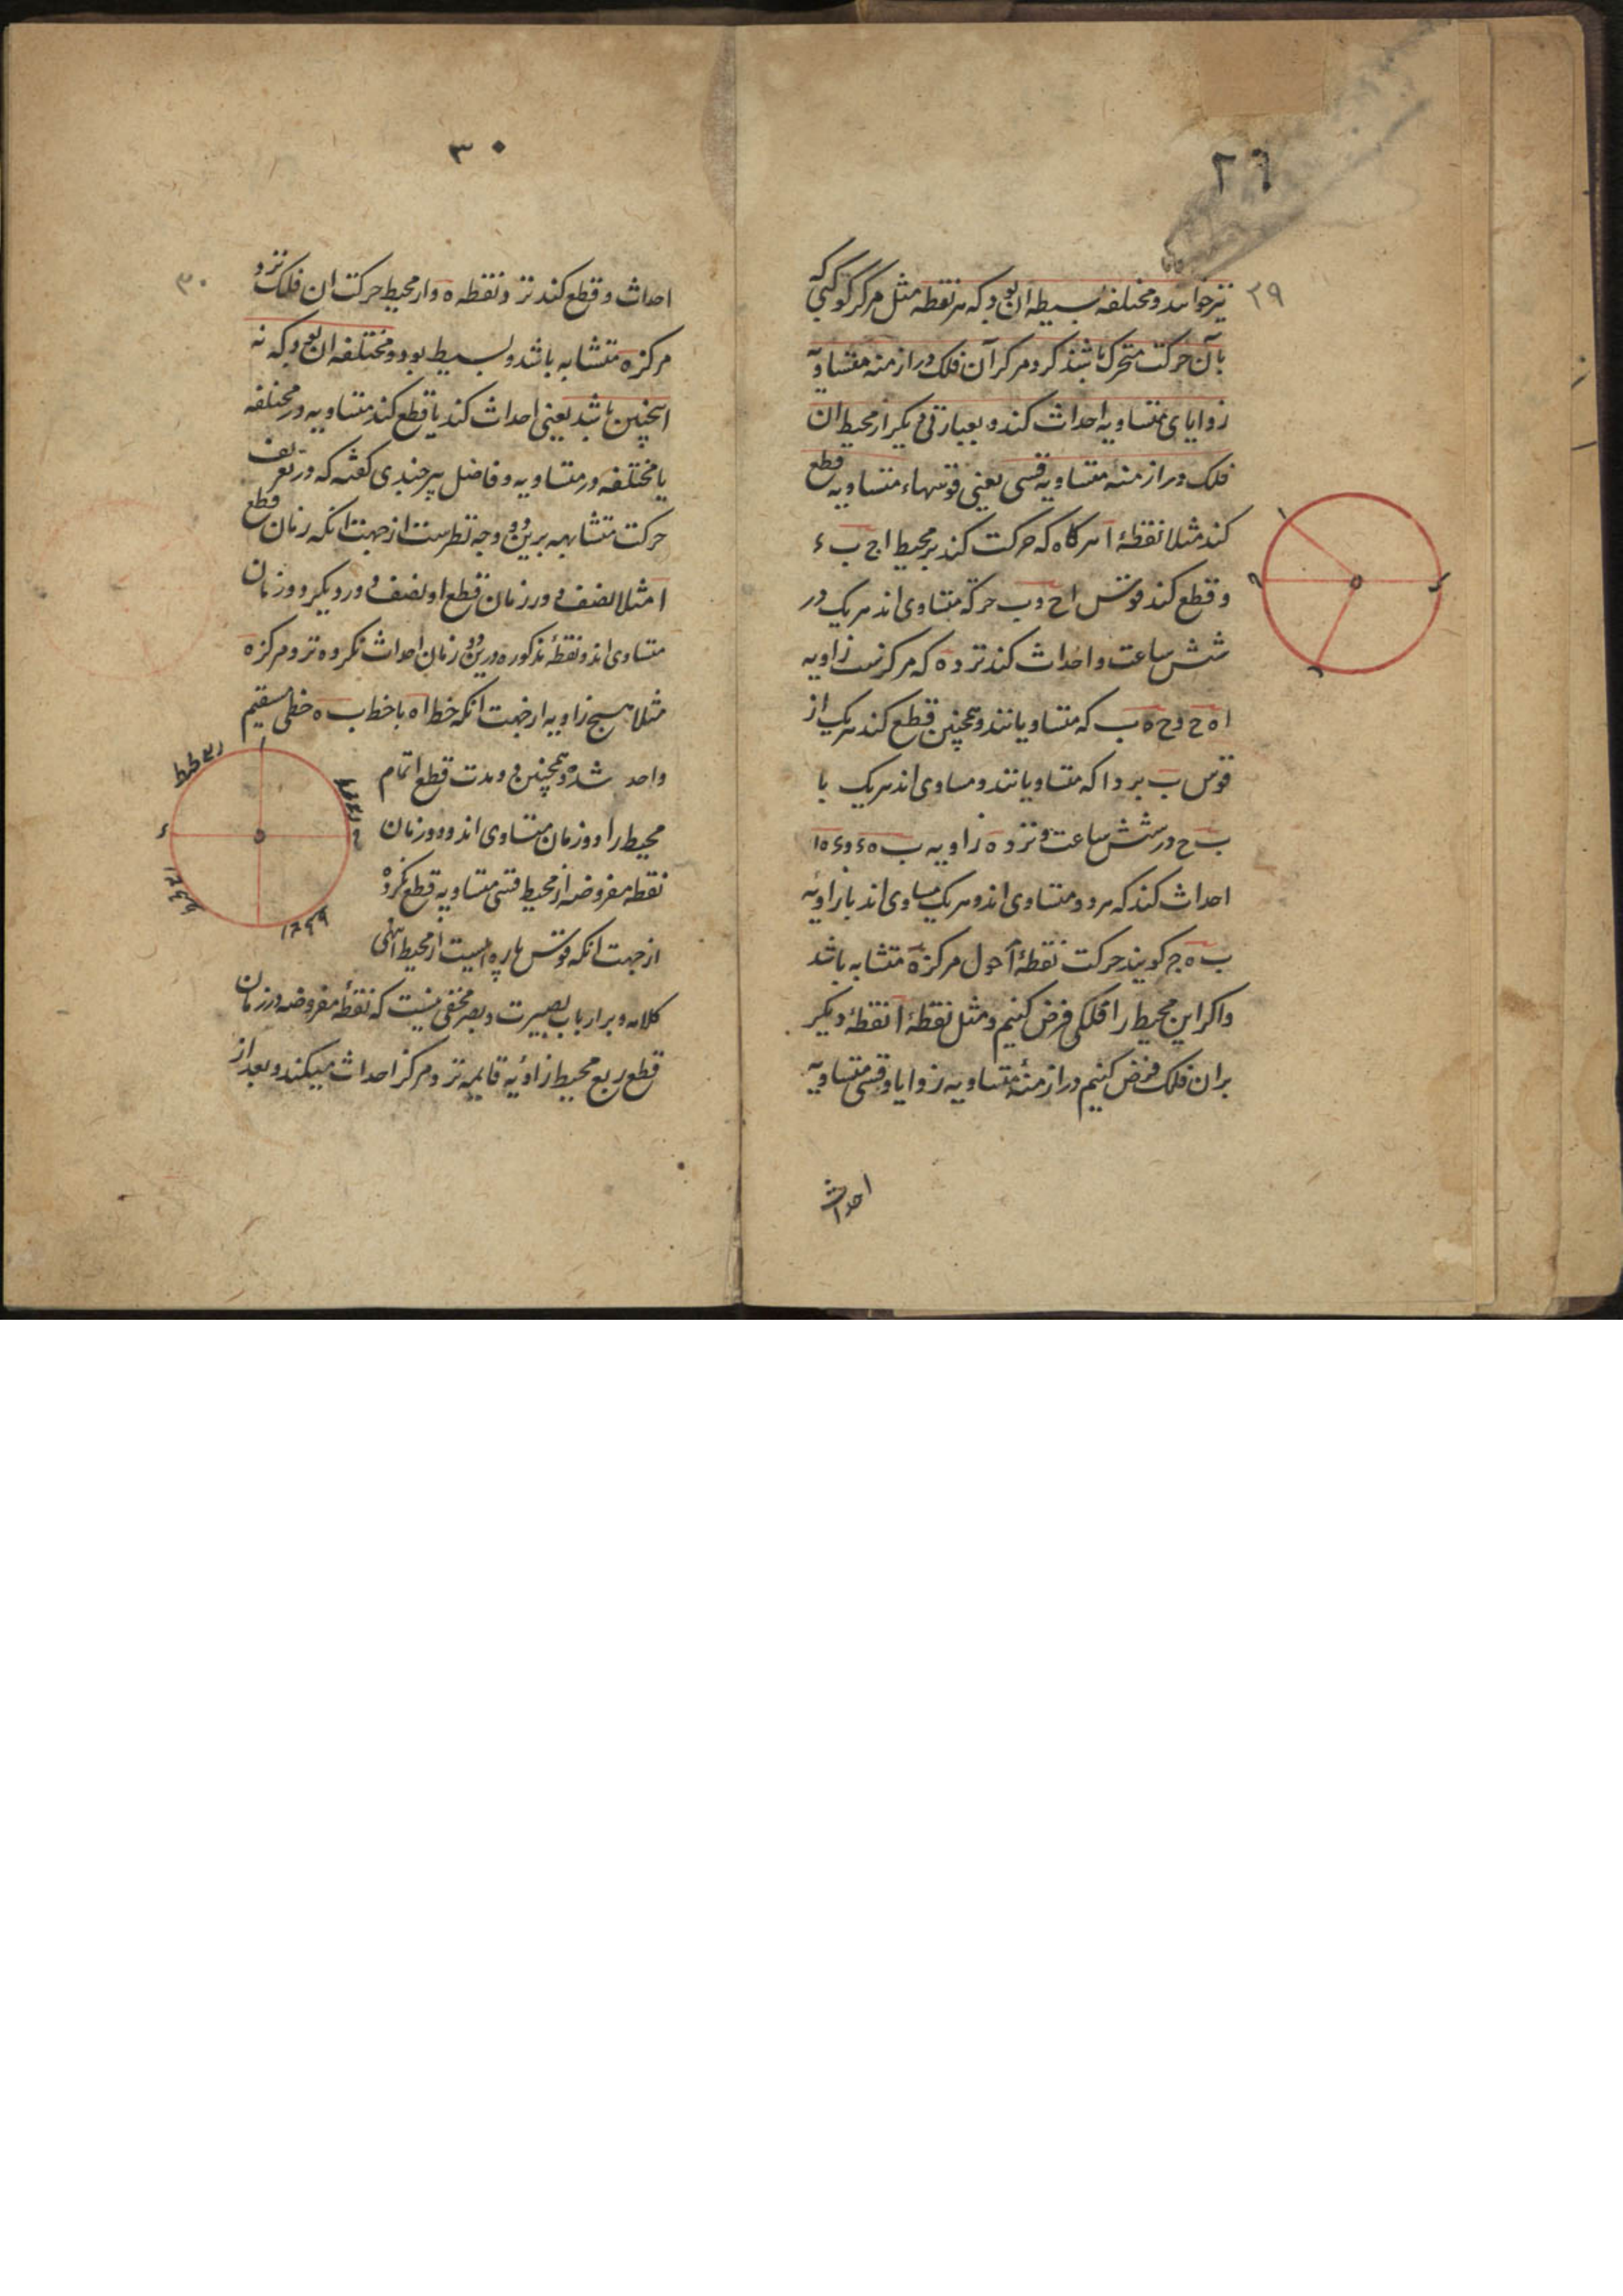 ۲۹
۲۹
نیز خوانند و مختلفه بسیطه ان بود که هر نقطه مثل مرکز کوکبی که
بآن حرکت متحرک باشد کرد مرکز آن فلک در ازمنه متساویه
زوایای متساویه احداث کند و بعبارتی دیکر از محیط ان
فلک در ازمنهٔ متساویه قسی یعنی قوسهاء متساویه قطع
کند مثلا نقطهٔ ا هر کاه که حرکت کند بر محیط اج ب ء
و قطع کند قوس اح و ب ح که متساوی اند هریک در
شش ساعت و احداث کند نزد ه که مرکزست زاویه
ا ه ح و ح ه ب که متساویانند و همچنین قطع کند هریک از
قوس ب ء و ء ا که متساویانند و مساوی اند هریک با
ب ح در شش ساعت و نزد ه زاویه ب ه ء و ء ه ا
احداث کند که هر دو متساوی اند و هریک مساوی اند با زاویهٔ
ب ه ج کویند حرکت نقطهٔ ا حول مرکز ه متشابه باشد
و اکر این محیط را فلکی فرض کنیم و مثل نقطهٔ ا نقطهٔ دیکر
بران فلک فرض کنیم در ازمنهٔ متساویه زوایا و قسی متساویه
احداث
۳۰
۳۰
احداث و قطع کند نزد نقطه ه و از محیط حرکت ان فلک نزد
مرکز ه متشابه باشد و بسیط بود و مختلفه ان بود که نه
اینچنین باشد یعنی احداث کند یا قطع کند متساویه در مختلفه
یا مختلفه در متساویه و فاضل بیرجندی کفته که در تعریف
حرکت متشابهه برین دو وجه نظرست از جهت انکه زمان قطع
ا مثلا نصف در زمان قطع او نصف دور دیکر دو زمان
متساوی اند و نقطهٔ مذکوره درین دو زمان احداث نکرده نزد مرکز ه
مثلا هیچ زاویه از جهت انکه خط ا ه با خط ب ه خطی مستقیم
واحد شده و همچنین دو مدت قطع اتمام
محیط را دو زمان متساوی اند و دو زمان
نقطه مفروضه از محیط قسی متساویه قطع نکرده
از جهت انکه قوس پاره ایست از محیط انتهی
کلامه و بر ارباب بصیرت و بصر مخفی نیست که نقطهٔ مفروضه در زمان
قطع ربع محیط زاویهٔ قایمه نزد مرکز احداث میکند و بعد از